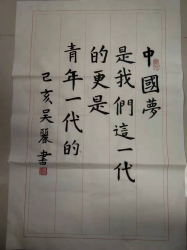 中國夢
是我們這一代
的更是
青年一代的
己亥吴麗書